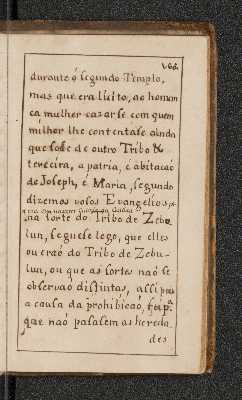 durante o segundo Templo,
mas que era licito, ao homem
ea mulher cazarse com quem
milhor lhe contentase ainda
que fose de outro Tribo &
terceira, a patria, é abitacaó
de Joseph, é Maria, segundo
dizemos vosos Evangelios
na sorte do Tribo de Zebu
lun, seguese logo, que elles
ou eraó do Tribo de Zebu-
lun, ou que as sortes naó se
observaó distintas, assi pois
a causa da prohibicaó,
que naó pasasem as hereda
des